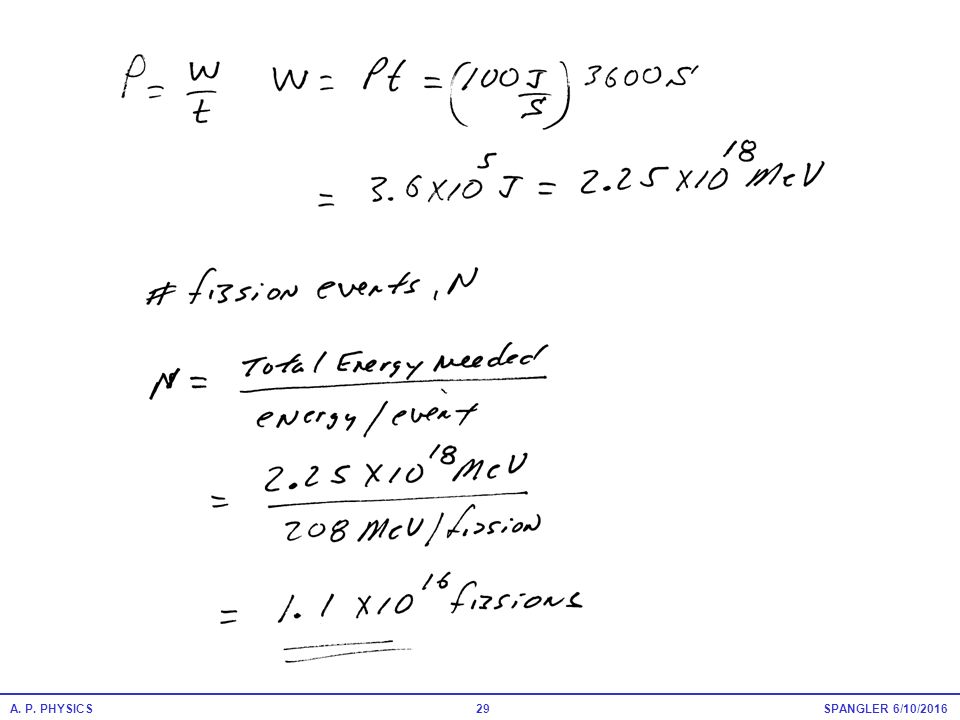 P = W/t W = Pt = (100 J/S) 3600 S
= 3.6 X 10^5 J = 2.25 X 10^18 MeV
# fission events, N
N = Total Energy Needed / energy/event
= 2.25 X 10^18 MeV / 208 MeV/fission
= 1.1 X 10^16 fissions
A. P. PHYSICS 29 SPANGLER 6/10/2016